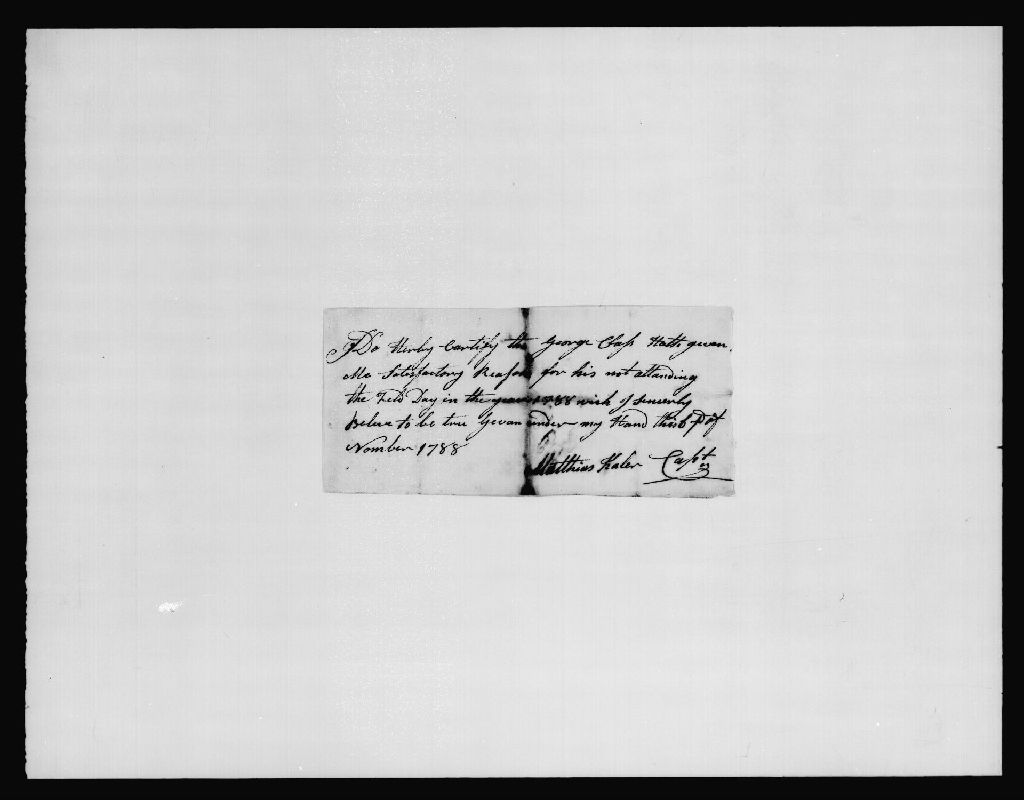 I Do Herby Cartify the George Class Hath gevan
Me Satisfactory Reason for his not attanding
the Feld Day in the year 1788 wich I sencerly
Beleve to be true Gevan under my Hand this of
Nomber 1788
Matthias Kaler Capt